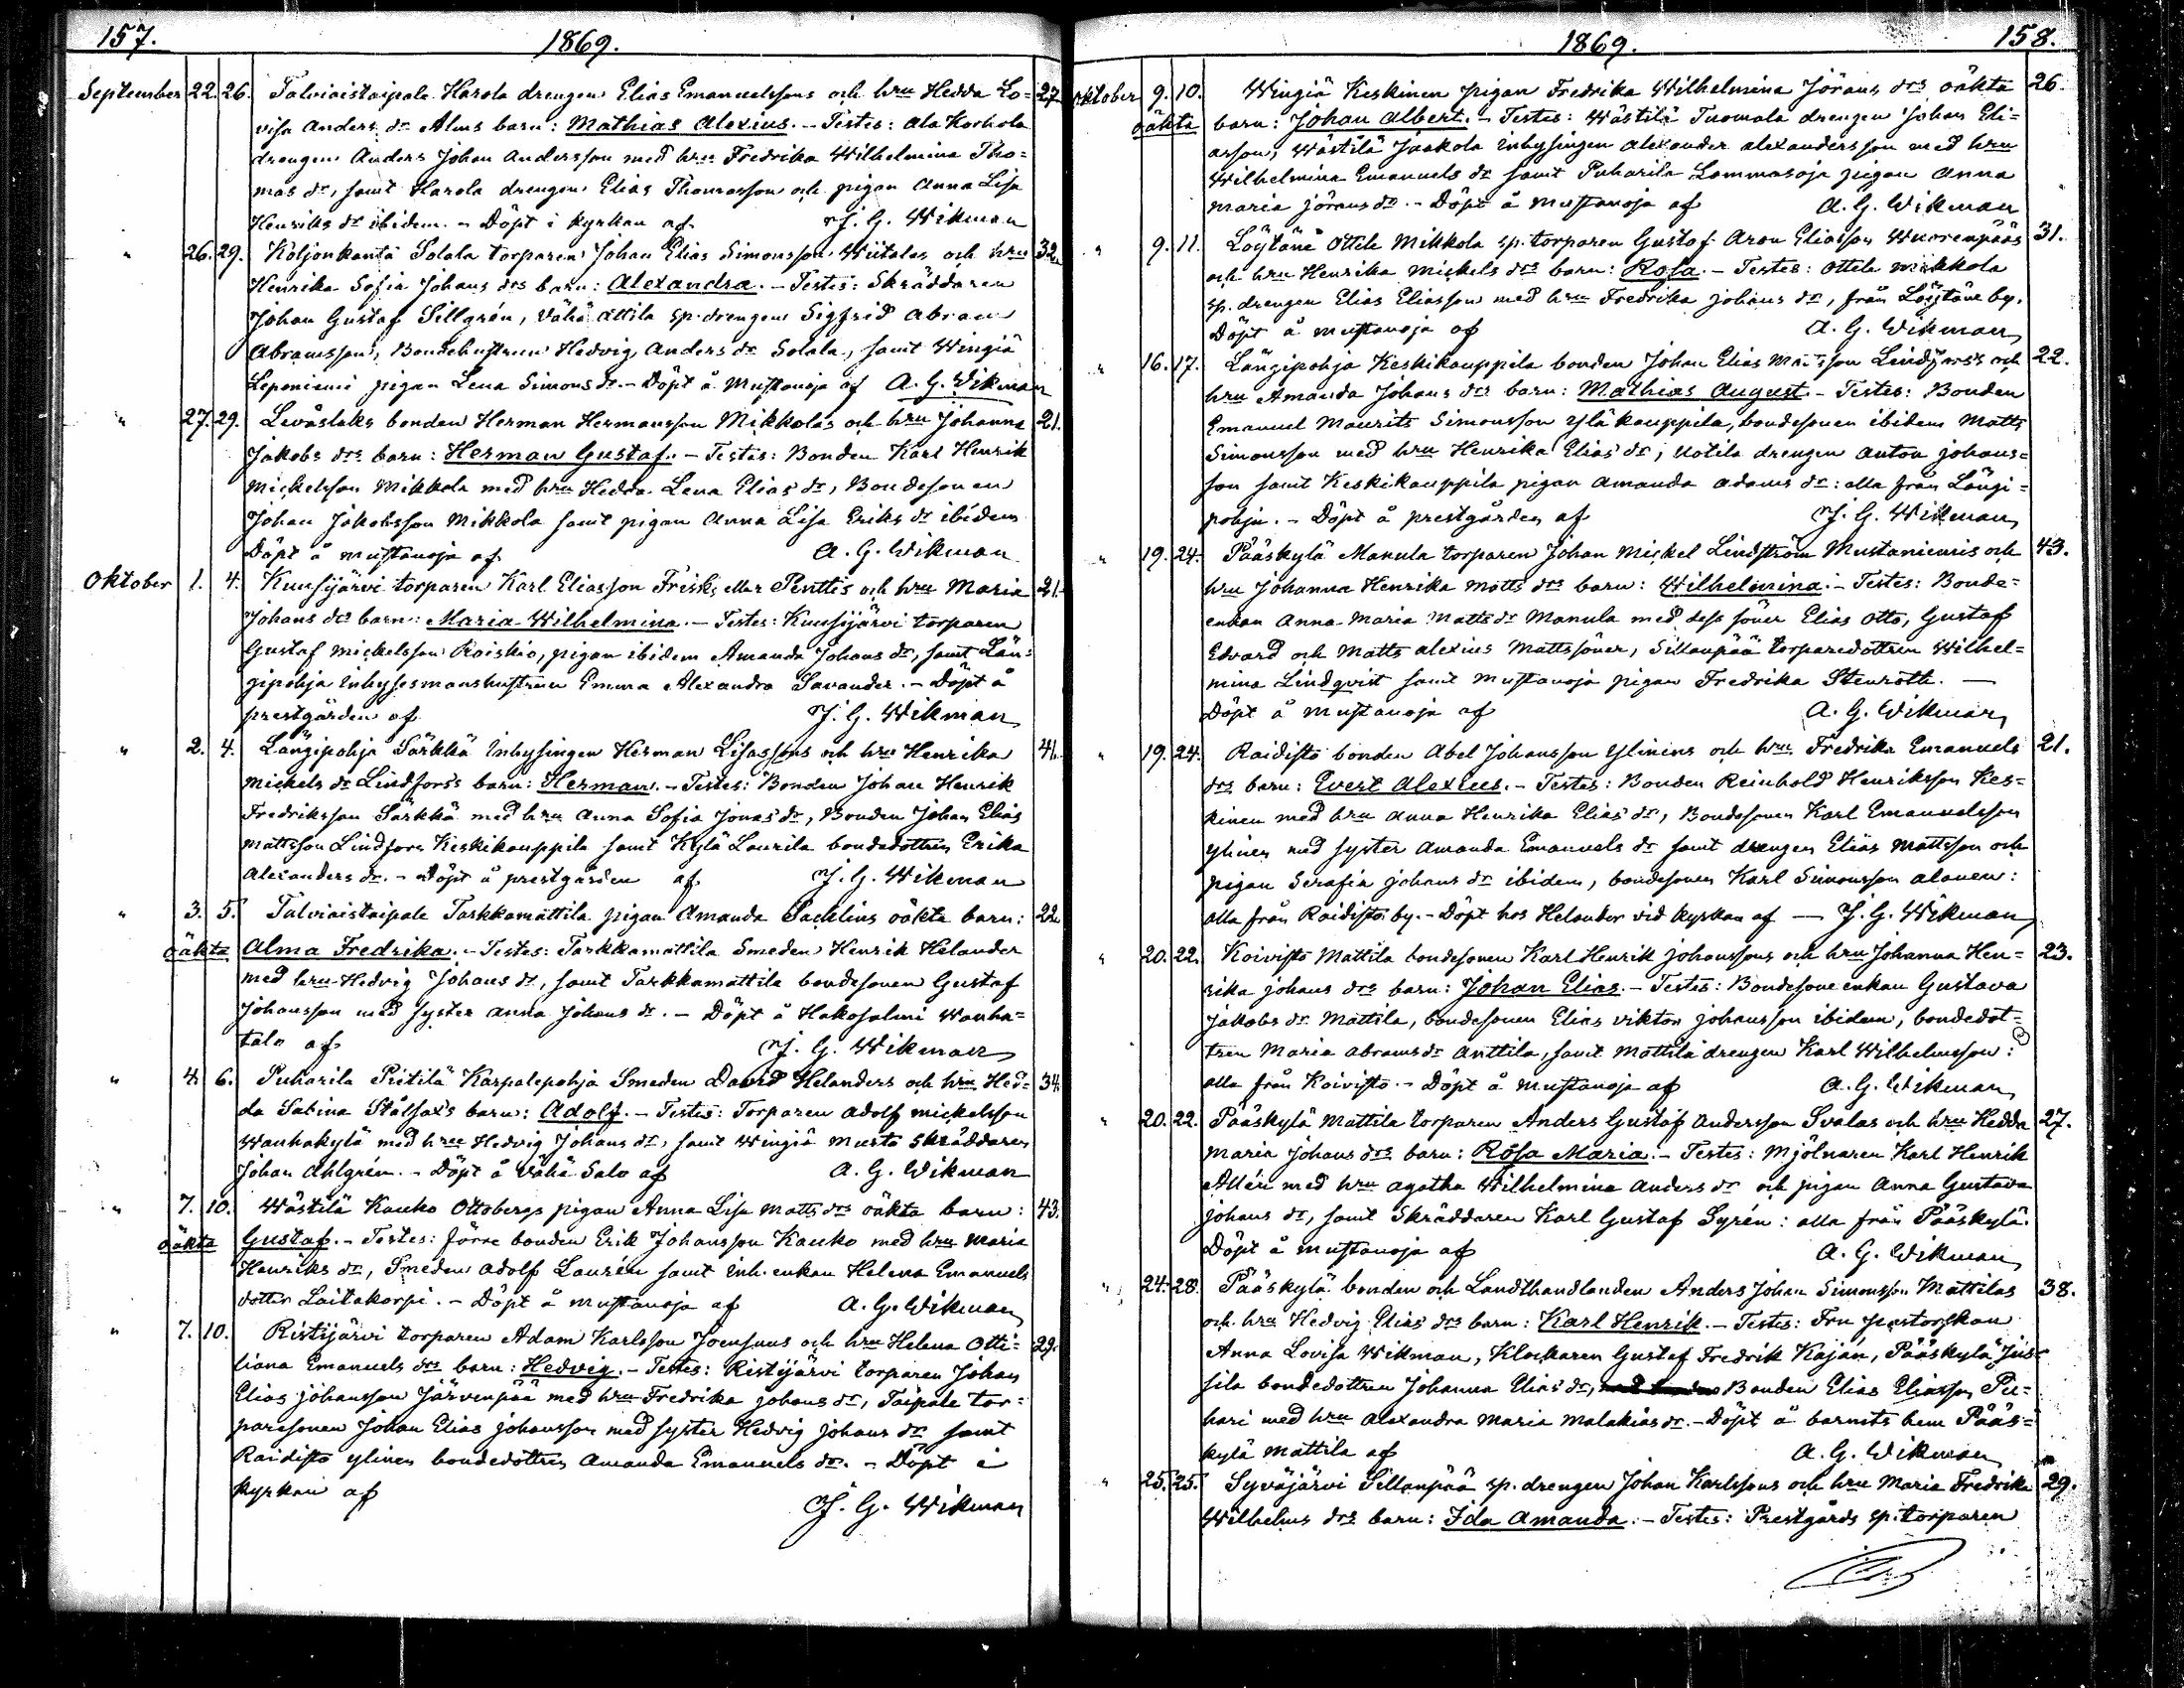 157.
1869.
September 22. 26. Talviaistaipale Harola drengen Elias Emanuelssons och hru Hedda Lo= 27.
visa Anders dr Alms barn: Mathias Alexius. - Testes: Ala Korhola
drengen Anders Johan Andersson med hru Fredrika Wilhelmina Tho=
mas dr, samt Harola drengen Elias Thomasson och pigan Anna Lisa
Henriks dr ibidem. - Döpt i kyrkan af J. G. Wikman
" 26. 29. Koljonkanta Solala torparen Johan Elias Simonsson Wiitalas och hru 32.
Henrika Sofia Johans drs barn: Alexandra. - Testes: Skräddaren
Johan Gustaf Sillgrén, Vähä attila sp. drengen Sigfrid Abram
Abramsson, Bondehustrun Hedvig Anders dr Solala, samt Wingiä
Leponiemi pigan Lena Simons dr. - Döpt å Mustanoja af A. G. Wikman
" 27. 29. Levåslaks bonden Herman Hermansson Mikkolas och hru Johanna 21.
Jakobs drs barn: Herman Gustaf. - Testes: Bonden Karl Henrik
Mickelsson Mikkola med hru Hedda Lena Elias dr, Bondesonen
Johan Jakobsson Mikkola samt pigan Anna Lisa Eriks dr ibidem
Döpt å mustanoja af A. G. Wikman
Oktober 1. 4. Kuusijärvi torparen Karl Eliasson Frisks eller Penttis och hru Maria 21.
Johans drs barn: Maria Wilhelmina. - Testes: Kuusijärvi torparen
Gustaf Mickelsson Roiskio, pigan ibidem Amanda Johans dr, samt Län=
gipohja inhysesmanshustrun Emma Alexandra Savander. - Döpt å
prestgården af J. G. Wikman
" 2. 4. Längipohja Särkkä Inhysingen Herman Lisassons och hru Henrika 41.
Mickels dr Lindfors's barn: Herman. - Testes: Bonden Johan Henrik
Fredriksson Särkkä med hru Anna Sofia Jonas dr, Bonden Johan Elias
Mattsson Lindfors Keskikauppila samt Kylä Laurila bondedottren Erika
Alexanders dr. - Döpt å prestgården af J. G. Wikman
" 3. 5. Talviaistaipale Tarkkamattila pigan Amanda Sacklins oäkta barn: 22.
oäkta Alma Fredrika. - Testes: Tarkkamattila Smeden Henrik Helander
med hru Hedvig Johans dr, samt Tarkkamattila bondesonen Gustaf
Johansson med syster Anna Johans dr. - Döpt å Hakosalmi Wanha=
talo af J. G. Wikman
" 4. 6. Puharila Pietilä Karpalepohja Smeden David Helanders och hru Hed= 34.
da Sabina Stålfax's barn: Adolf. - Testes: Torparen Adolf Mickelsson
Wanhakylä med hru Hedvig Johans dr, samt Wingiä Musta Skräddaren
Johan Ahlgrén. - Döpt å Vähä Salo af A. G. Wikman
" 7. 10. Wästilä Kauko Ottobergs pigan Anna Lisa Matts drs oäkta barn: 43.
oäkta Gustaf. - Testes: förre bonden Erik Johansson Kauko med hru Maria
Henriks dr, Smeden Adolf Laurén samt Inh. enkan Helena Emanuels
dotter Laitakorpi. - Döpt å mustanoja af A. G. Wikman
" 7. 10. Ristijärvi torparen Adam Karlsson Joensuus och hru Helena Otti= 29.
liana Emanuels drs barn: Hedvig. - Testes: Ristijärvi torparen Johan
Elias Johansson Järvenpää med hru Fredrika Johans dr, Taipale tor=
paresonen Johan Elias Johansson med syster Hedvig Johans dr samt
Raidisto Ylinen bondedottren Amanda Emanuels dr. - Döpt i
kyrkan af J. G. Wikman
1869.
158.
Oktober 9. 10. Wingiä Keskinen pigan Fredrika Wilhelmina Jörans drs oäkta 26.
oäkta barn: Johan Albert. - Testes: Wästilä Tuomala drengen Johan Eli=
asson, Wästilä Jaakola Inhysingen Alexander Alexandersson med hru
Wilhelmina Emanuels dr samt Puharila Lammasoja pigan Anna
Maria Jörans dr. - Döpt å Mustanoja af A. G. Wikman
" 9. 11. Löytäne Ottila Mikkola sp. torparen Gustaf Aron Eliasson Wuorenpääs 31.
och hru Henrika Mickels drs barn: Rosa. - Testes: Ottila Mikkola
sp. drengen Elias Eliasson med hru Fredrika Johans dr, från Löytäne by.
Döpt å Mustanoja af A. G. Wikman
" 16. 17. Längipohja Keskikauppila bonden Johan Elias Mattsson Lindfors's och 22.
hru Amanda Johans drs barn: Mathias August. - Testes: Bonden
Emanuel Maurits Simonsson Yläkauppila, bondesonen ibidem Matts
Simonsson med hru Henrika Elias dr, Uotila drengen Anton Johans=
son samt Keskikauppila pigan Amanda Adams dr: alla från Längi=
pohja. - Döpt å prestgården af J. G. Wikman
" 19. 24. Pääskylä Manula torparen Johan Mickel Lindström Mustaniemis och 43.
hru Johanna Henrika Matts drs barn: Wilhelmina. - Testes: Bonde=
enkan Anna Maria Matts dr Manula med dess söner Elias Otto, Gustaf
Edvard och Matts Alexius Mattssöner, Sillanpää torparedottren Wilhel=
mina Lindqvist samt Mustanoja pigan Fredrika Stenroth. -
Döpt å Mustanoja af A. G. Wikman
" 19. 24. Raidisto bonden Abel Johansson Ylinens och hru Fredrika Emanuels 21.
drs barn: Evert Alexius. - Testes: Bonden Reinhold Henriksson Kes=
kinen med hru Anna Henrika Elias dr, Bondesonen Karl Emanuelsson
Ylinen med syster Amanda Emanuels dr samt drengen Elias Mattsson och
pigan Serafia Johans dr ibidem, bondesonen Karl Simonsson Alanen:
alla från Raidisto by. - Döpt hos Helander vid kyrkan af - J. G. Wikman
" 20. 22. Koivisto Mattila bondesonen Karl Henrik Johanssons och hru Johanna Hen= 23.
rika Johans drs barn: Johan Elias. - Testes: Bondesone enkan Gustava
Jakobs dr Mattila, bondesonen Elias Viktor Johansson ibidem, bondedot=
tren Maria Abrams dr Anttila, samt Mattila drengen Karl Wilhelmsson:
alla från Koivisto. - Döpt å Mustanoja af A. G. Wikman
" 20. 22. Pääskylä Mattila torparen Anders Gustaf Andersson Svalas och hru Hedda 27.
Maria Johans drs barn: Rosa Maria. - Testes: Mjölnaren Karl Henrik
Alléri med hru Agatha Wilhelmina Anders dr och pigan Anna Gustava
Johans dr, samt Skräddaren Karl Gustaf Syrén: alla från Pääskylä.
Döpt å Mustanoja af A. G. Wikman
" 24. 28. Pääskylä bonden och Landthandlanden Anders Johan Simonsson Mattilas 38.
och hru Hedvig Elias drs barn: Karl Henrik. - Testes: Fru pastorskan
Anna Lovisa Wikman, Klockaren Gustaf Fredrik Kaján, Pääskylä Jus=
sila bondedottren Johanna Elias dr, Bonden Elias Eliasson Pu=
hari med hru Alexandra Maria Malakias dr. - Döpt å barnets hem Pääs=
kylä Mattila af A. G. Wikman
" 25. 25. Syväjärvi Sillanpää sp. drengen Johan Karlssons och hru Maria Fredrika 29.
Wilhelms drs barn: Ida Amanda. - Testes: Prestgårds sp. torparen